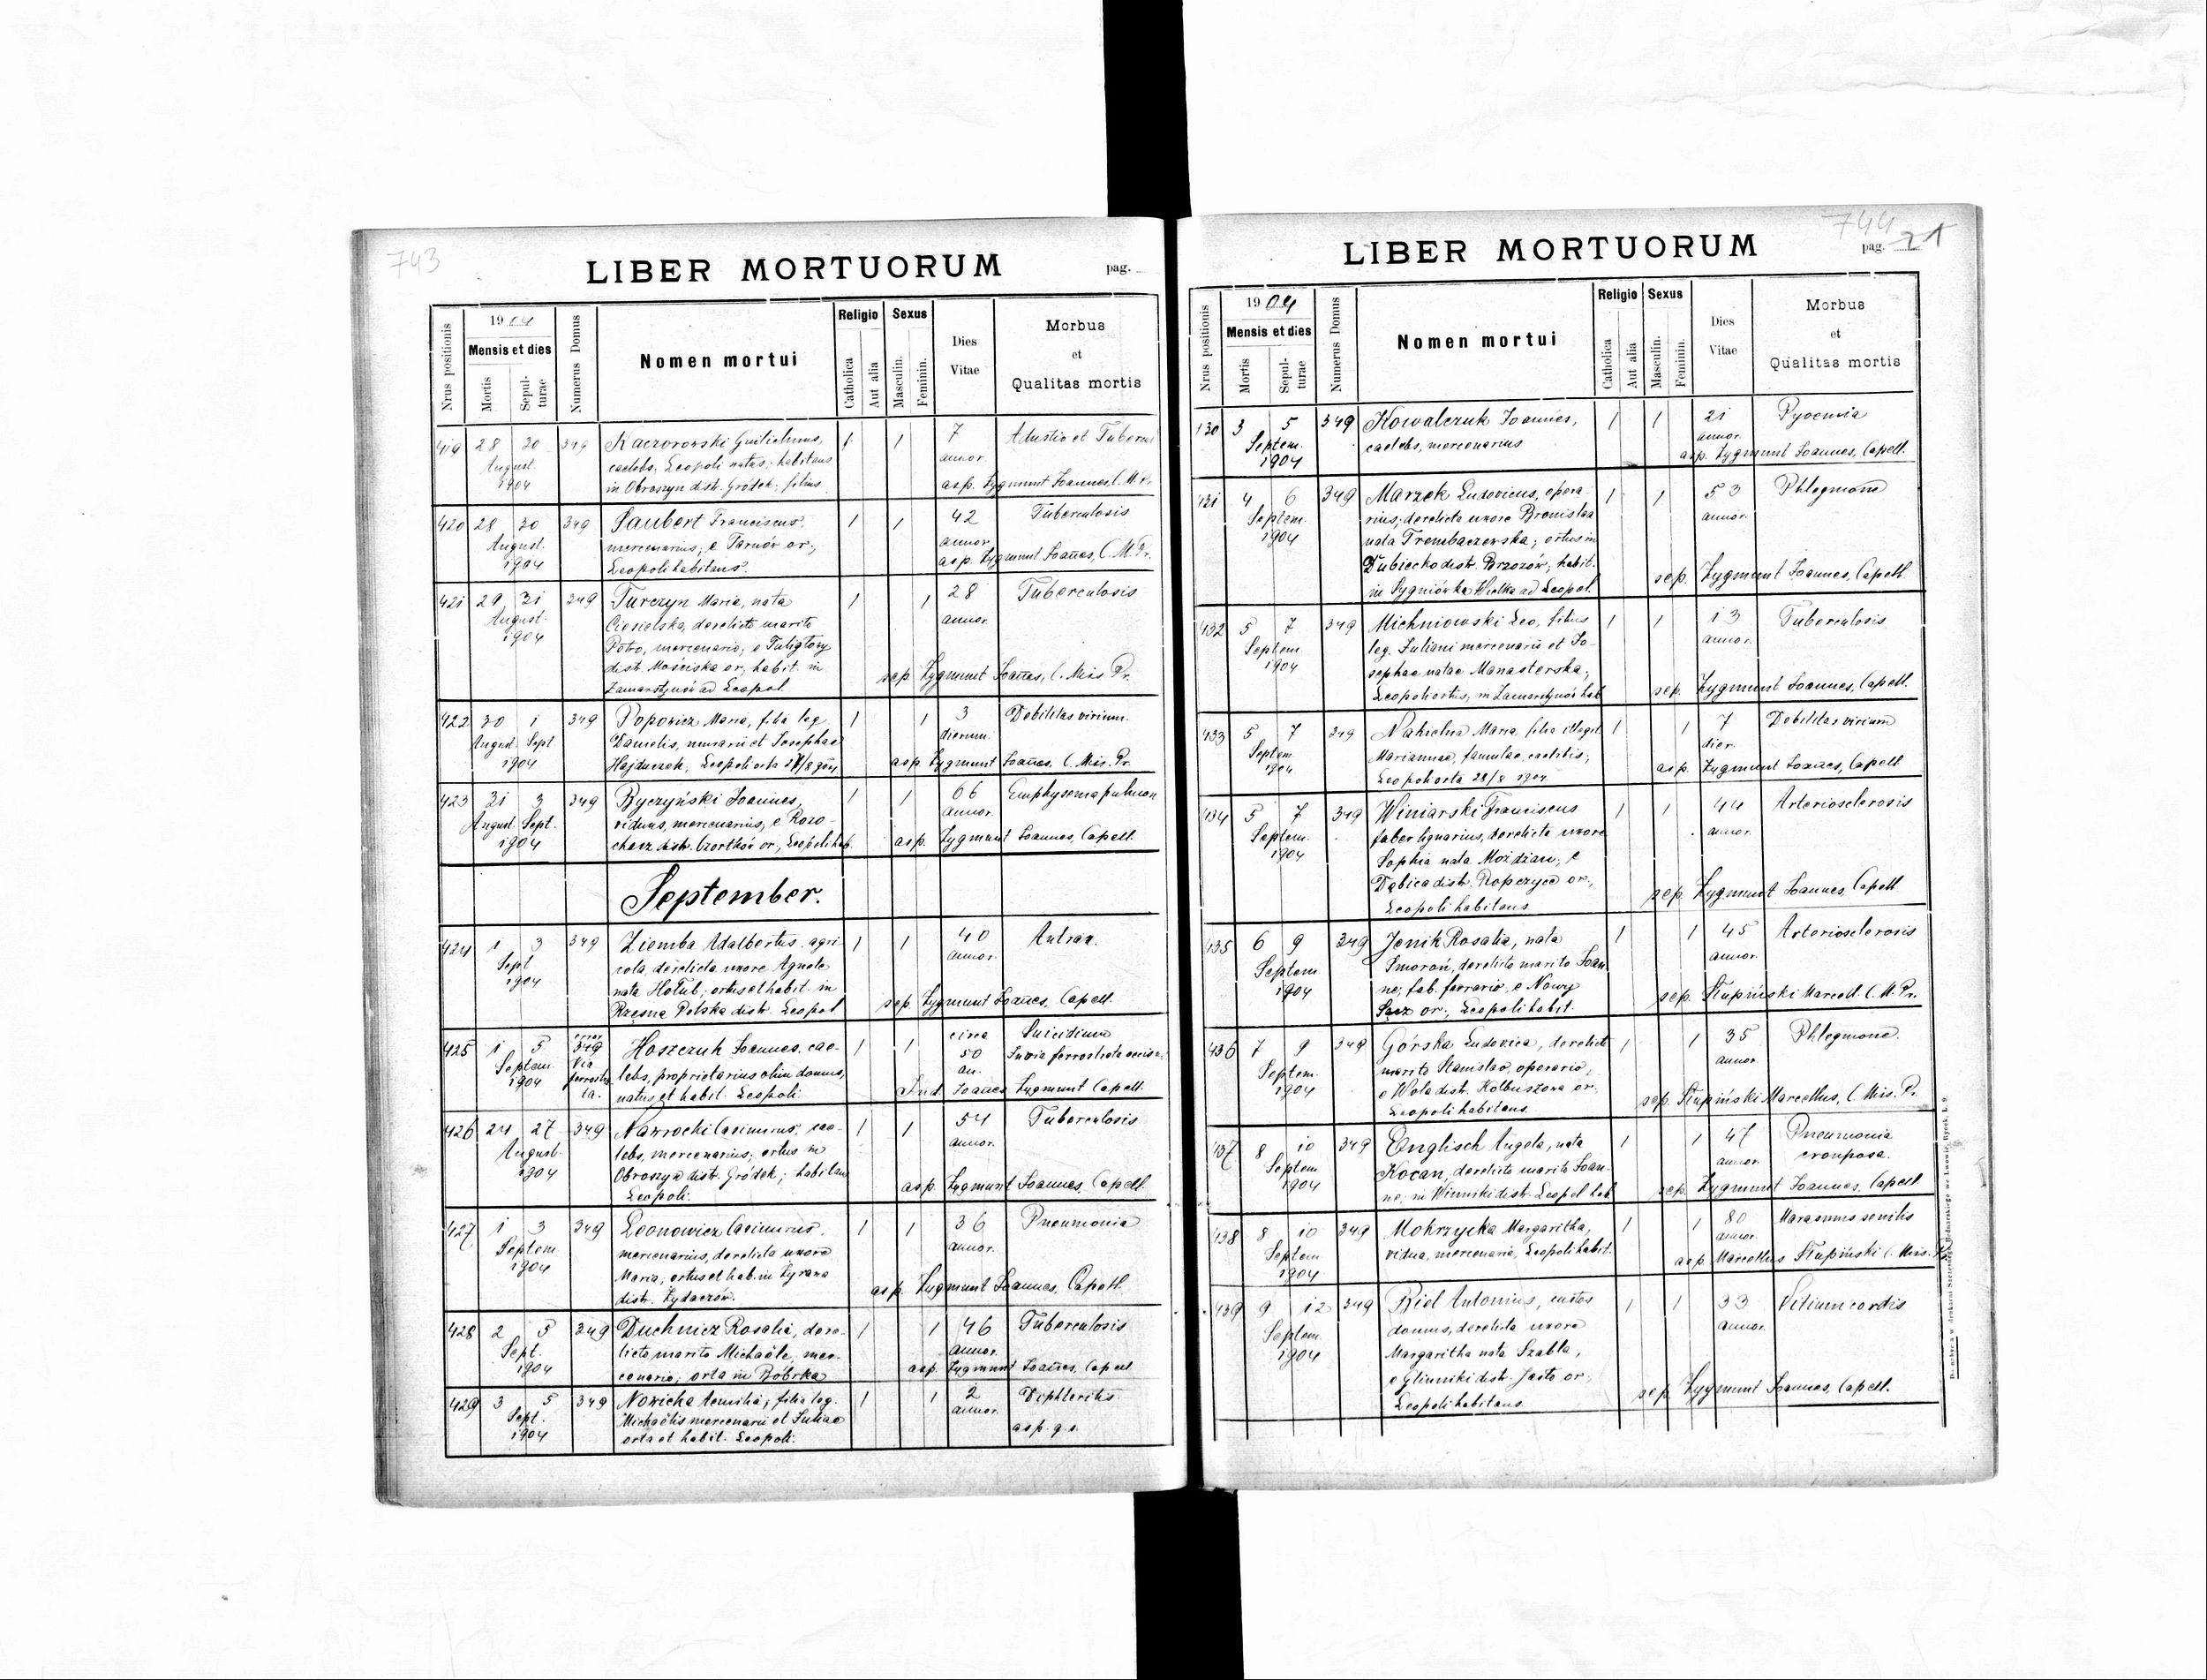 743
LIBER MORTUORUM
pag.
Nrus positionis
1904
Mensis et dies
Mortis
Sepul-
turae
Numerus Domus
Nomen mortui
Religio
Catholica
Aut alia
Sexus
Masculin.
Feminin.
Dies
Vitae
Morbus
et
Qualitas mortis
419 28 30 349 Kaczorowski Guilielmus, 1 1 7
August. caelebs, Leopoli natus; habitans annor.
1904 in Obroszyn distr. Gródek; filius asp. Zygmunt Joannes, C. M. Pr.
420 28 30 349 Saubert Franciscus, 1 1 42 Tuberculosis
August. mercenarius; e Tarnów or., annor.
1904 Leopoli habitans. asp. Zygmunt Joannes, C. M. Pr.
421 29 31 349 Turczyn Maria, nata 1 1 28 Tuberculosis
August. Ciesielska, derelicto marito annor.
1904 Petro, mercenario; e Tuligłowy
distr. Mościska or., habit. in sep. Zygmunt Joannes, C. Mis. Pr.
Zamarstynów ad Leopol.
422 30 1 349 Popowicz Maria, filia leg. 1 1 3 Debilitas virium.
August. Sept Danielis, murarii et Josephae dierum.
1904 Hajduczek, Leopoli orta asp. Zygmunt Joannes, C. Mis. Pr.
423 31 3 349 Byczyński Joannes, 1 1 66 Emphysema pulmon
August. Sept. viduus, mercenarius, e Roso- annor.
1904 chacz distr. Czortków or., Leopoli hab. asp. Zygmunt Joannes, Capell.
September.
424 1 3 349 Ziemba Adalbertus, agri- 1 1 40 Antrax.
Sept cola, derelicta uxore Agnete annor.
1904 nata Hołub; ortus et habit. in
Rzęsna Polska distr. Leopol sep. Zygmunt Joannes, Capell.
425 1 5 349 Hoszczuk Joannes, cae- 1 1 circa Suicidium
Septem. Via lebs, proprietarius olim domus, 50 In via ferrostrata
1904 natus et habit. Leopoli. an. Joannes Zygmunt Capell.
426 24 27 349 Nawrocki Casimirus, cae- 1 1 54 Tuberculosis
August. lebs, mercenarius; ortus in annor.
1904 Obroszyn distr. Gródek; habitans
Leopoli. asp. Zygmunt Joannes, Capell.
427 1 3 349 Leonowicz Casimirus, 1 1 36 Pneumonia
Septem. mercenarius, derelicta uxore annor.
1904 Maria; ortus et hab. in Żyrawa
distr. Żydaczów. asp. Zygmunt Joannes, Capell.
428 2 3 349 Duchnicz Rosalia, dere- 1 1 46 Tuberculosis
Sept. licto marito Michaële, mer- annor.
1904 cenario; orta in Bóbrka asp. Zygmunt Joannes, Capell
429 3 5 349 Nowicka Aemilia; filia leg. 1 1 2 Diphteritis
Sept. Michaëlis mercenarii et Juliae annor.
1904 orta et habit. Leopoli. asp. q. s.
744
LIBER MORTUORUM
pag. 21
Nrus positionis
1904
Mensis et dies
Mortis
Sepul-
turae
Numerus Domus
Nomen mortui
Religio
Catholica
Aut alia
Sexus
Masculin.
Feminin.
Dies
Vitae
Morbus
et
Qualitas mortis
430 3 5 349 Kowalczuk Joannes, 1 1 21 Pyoemia
Septem. caelebs, mercenarius annor.
1904 asp. Zygmunt Joannes, Capell.
431 4 6 349 Marzek Ludovicus, opera- 1 1 53 Phlegmone
Septem. rius; derelicta uxore Bronislaa annor.
1904 nata Trembaczewska; ortus in
Dubiecko distr. Brzozów; habit. sep. Zygmunt Joannes, Capell.
in Sygniówka Wielka ad Leopol.
432 5 7 349 Michniowski Leo, filius 1 1 13 Tuberculosis
Septem leg. Juliani mercenarii et Jo- annor.
1904 sephae natae Manasterska;
Leopoli ortus, in Zamarstynów hab sep. Zygmunt Joannes, Capell.
433 5 7 349 Maria filia illegit. 1 1 7 Debilitas virium
Septem Mariannae, famulae, caelibis; dier.
1904 Leopoli orta 28/8 1904 asp. Zygmunt Joannes, Capell
434 5 7 349 Winiarski Franciscus 1 1 44 Arteriosclerosis
Septem. faber lignarius, derelicta uxore annor.
1904 Sophia nata Moździan; e
Dębica distr. Ropczyce or., sep. Zygmunt Joannes, Capell
Leopoli habitans
435 6 9 349 Jenik Rosalia, nata 1 1 45 Arteriosclerosis
Septem Smoroń, derelicto marito Joan- annor.
1904 ne; fab. ferrario, e Nowy
Sącz or., Leopoli habit. sep. Słupiński Marcell. C. M. Pr.
436 7 9 349 Górska Ludovica, derelict 1 1 35 Phlegmone.
Septem. marito Stanislao, operario, annor.
1904 e Wola distr. Kolbuszowa or.
Leopoli habitans. sep. Słupiński Marcellus, C. Mis. Pr.
437 8 10 349 Englisch Angela, nata 1 1 47 Pneumonia
Septem Kocan, derelicto marito Joan- annor. crouposa.
1904 ne; in Winniki distr. Leopol hab sep. Zygmunt Joannes, Capell
438 8 10 349 Mokrzycka Margaritha, 1 1 80 Marasmus senilis
Septem vidua, mercenaria, Leopoli habit. annor.
1904 asp. Marcellus Słupiński C. Mis. Pr.
439 9 12 349 Biel Antonius, custos 1 1 33 Vitium cordis
Septem. domus, derelicta uxore annor.
1904 Margaritha nata Szabla,
e Gliniki distr. Jasło or., sep. Zygmunt Joannes, Capell.
Leopoli habitans.